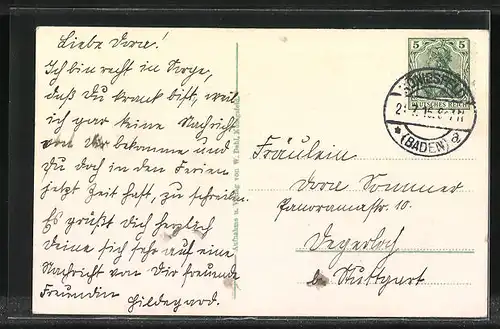 Liebe Dora!
Ich bin recht in Sorge,
daß Du krank bist, weil
ich gar keine Nachricht
von Dir bekomme und
Du doch in den Ferien
jetzt Zeit hast, zu schreiben.
Es grüßt Dich herzlich
Deine sich sehr auf eine
Nachricht von Dir freuende
Freundin Hildegard.
Aufnahme u. Verlag von W.
5 5
DEUTSCHES REICH
(BADEN) a
Fräulein
Dora Sommer
Panoramastr. 10.
Degerloch
b. Stuttgart